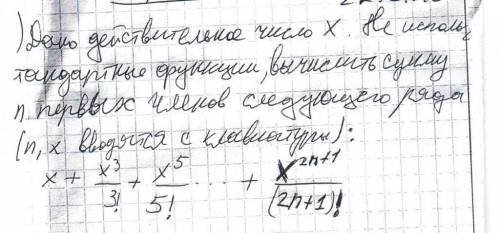 ) Дано действительное число X. Не исполь
тандартные функции, вычислить сумму
n первых членов следующего ряда
(n, x вводятся с клавиатуры):
x + x³/3! + x⁵/5! ... + x²ⁿ⁺¹/(2n+1)!